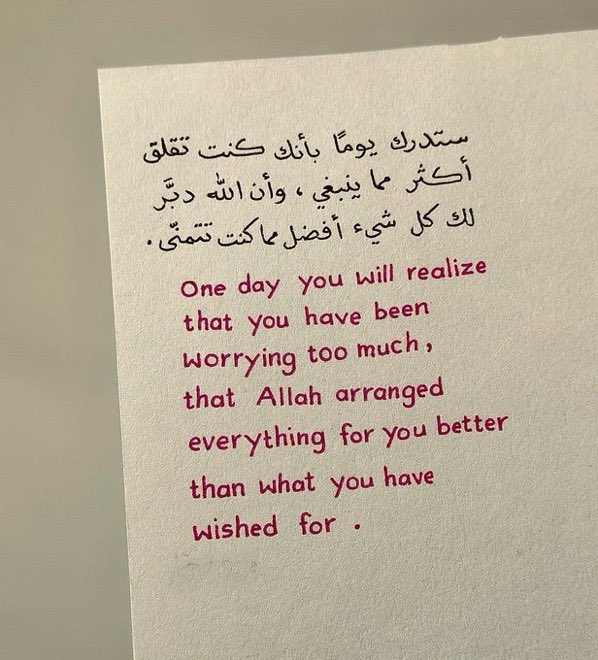 ستدرك يومًا بأنك كنت تقلق
أكثر مما ينبغي ، وأن الله دبَّر
لك كل شيء أفضل مما كنت تتمنّى .
One day you will realize
that you have been
worrying too much,
that Allah arranged
everything for you better
than what you have
wished for .